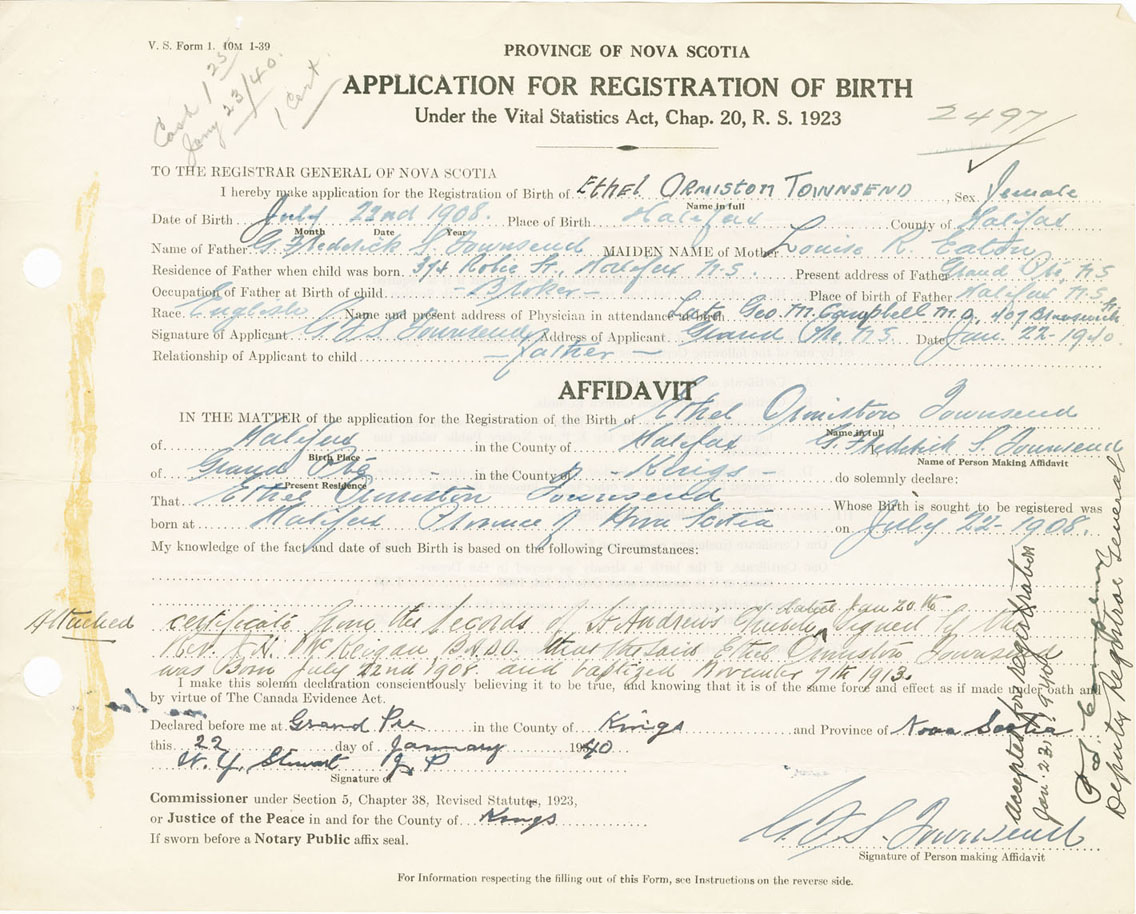 V. S. Form 1. 10M 1-39
Cash 1.25
Jany 23/40.
1 Cert.
PROVINCE OF NOVA SCOTIA
APPLICATION FOR REGISTRATION OF BIRTH
Under the Vital Statistics Act, Chap. 20, R. S. 1923
2497
TO THE REGISTRAR GENERAL OF NOVA SCOTIA
I hereby make application for the Registration of Birth of Ethel Ormiston Townsend, Sex Female
Name in full
Date of Birth July 22nd 1908. Place of Birth Halifax County of Halifax
Month Date Year
Name of Father G. Fredrick S. Townsend MAIDEN NAME of Mother Louise R. Eaton
Residence of Father when child was born. 394 Robie St., Halifax N.S. Present address of Father Grand Pre, N.S
Occupation of Father at Birth of child - Broker - Place of birth of Father Halifax, N.S.
Race. English Name and present address of Physician in attendance at birth Late Geo. M. Campbell M.D, 407 Brunswick St
Signature of Applicant G F S. Townsend Address of Applicant Grand Pre N.S. Date Jan. 22-1940.
Relationship of Applicant to child - Father -
AFFIDAVIT
IN THE MATTER of the application for the Registration of the Birth of Ethel Ormiston Townsend
Name in full
of Halifax in the County of Halifax G. Fredrick S. Townsend
Birth Place Name of Person Making Affidavit
of Grand Pre - in the County of - Kings - do solemnly declare:
Present Residence
That Ethel Ormiston Townsend Whose Birth is sought to be registered was
born at Halifax Province of Nova Scotia on July 22-1908.
My knowledge of the fact and date of such Birth is based on the following Circumstances:
dated Jan 20th
Attached certificate from the records of St Andrew's Church signed by the
Rev. Keigan B.A. D.D. that the said Ethel Ormiston Townsend
was Born July 22nd 1908 and baptized November 9th 1913.
I make this solemn declaration conscientiously believing it to be true, and knowing that it is of the same force and effect as if made under oath and
by virtue of The Canada Evidence Act.
Declared before me at Grand Pre in the County of Kings and Province of Nova Scotia
this 22 day of January 1940
W. Y. Stewart J P
Signature of
Commissioner under Section 5, Chapter 38, Revised Statutes, 1923,
or Justice of the Peace in and for the County of Kings
If sworn before a Notary Public affix seal.
G F S. Townsend
Signature of Person making Affidavit
Accepted for registration
Jan. 23. 1940
Deputy Registrar General
For Information respecting the filling out of this Form, see Instructions on the reverse side.